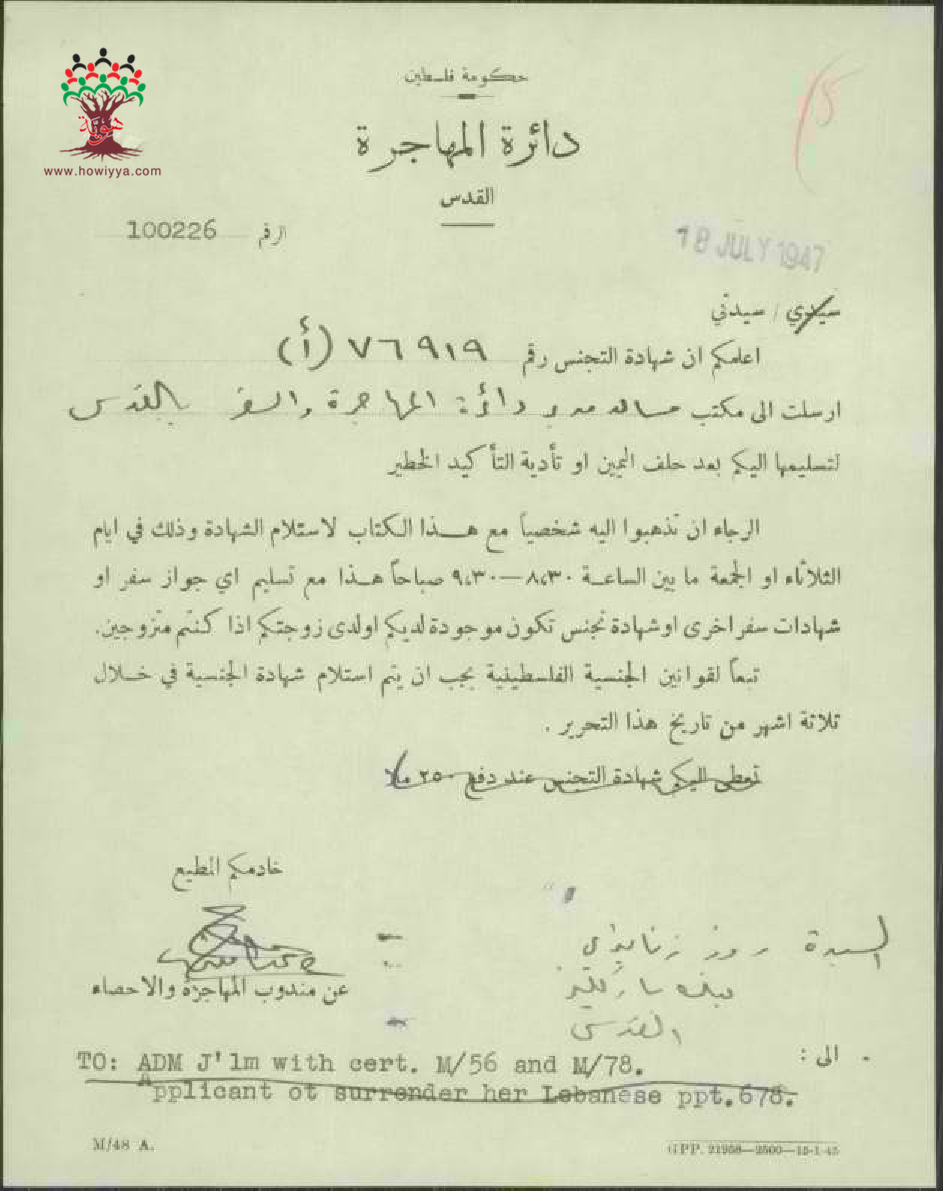 هوية
www.howiyya.com
حكومة فلسطين
دائرة المهاجرة
القدس
15
الرقم 100226
18 JULY 1947
سيدي / سيدتي
اعلمكم ان شهادة التجنس رقم ٧٦٩١٩ (أ)
ارسلت الى مكتب مساعد مدير دائرة المهاجرة والسفر بالقدس
لتسليمها اليكم بعد حلف اليمين او تأدية التأكيد الخطير
الرجاء ان تذهبوا اليه شخصياً مع هذا الكتاب لاستلام الشهادة وذلك في ايام
الثلاثاء او الجمعة ما بين الساعة ٨،٣٠—٩،٣٠ صباحاً هذا مع تسليم اي جواز سفر او
شهادات سفر اخرى او شهادة تجنس تكون موجودة لديكم او لدى زوجتكم اذا كنتم متزوجين.
تبعاً لقوانين الجنسية الفلسطينية يجب ان يتم استلام شهادة الجنسية في خلال
ثلاثة اشهر من تاريخ هذا التحرير .
تعطى اليكم شهادة التجنس عند دفع ٢٥٠ ملا
خادمكم المطيع
عن مندوب المهاجرة والاحصاء
السيدة روز
القدس
الى :
TO: ADM J'lm with cert. M/56 and M/78.
Applicant ot surrender her Lebanese ppt.678.
M/48 A.
GPP. 21958—2500—15-1-45